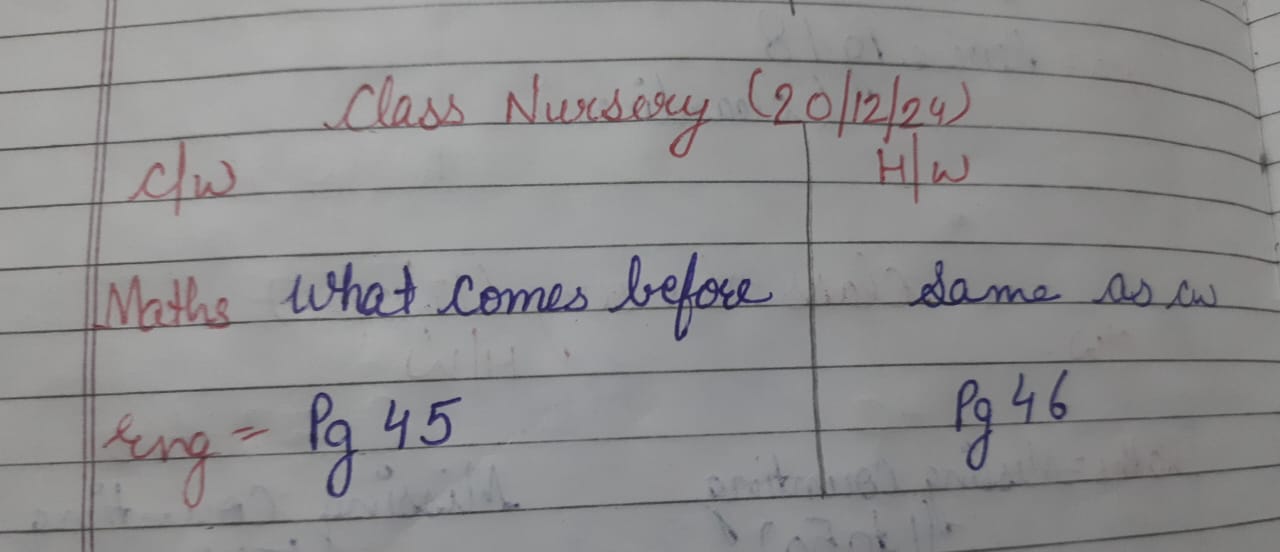 Class Nursery (20/12/24)
C/W H/W
Maths What comes before Same as cw
Eng = Pg 45 Pg 46